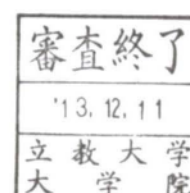 審査終了
'13.12.11
立教大学
大学院